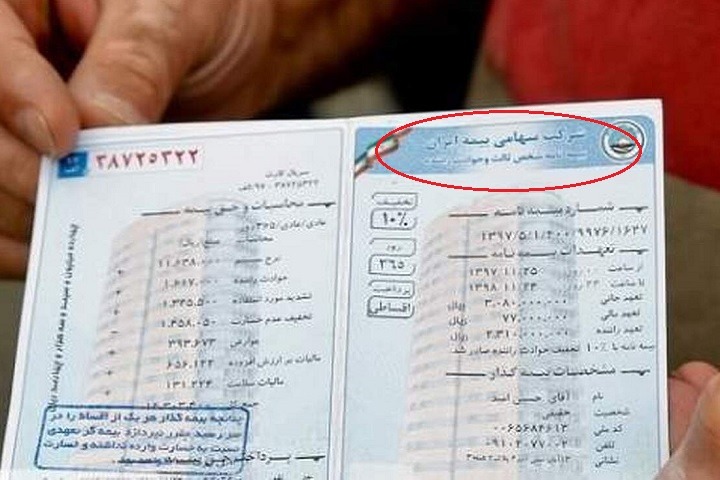 شرکت سهامی بیمه ایران
بیمه نامه شخص ثالث و حوادث راننده
تخفیف
۱۰%
روز
۳۶۵
پرداخت
اقساطی
شماره بیمه نامه
۱۳۹۷/۵/۱/۴۰۰/۹۹۷۶/۱۶۳۷
تعهدات بیمه نامه
از ساعت ۱۳۹۷ ۱۱ ۲۵
تا ساعت ۱۳۹۸ ۱۱ ۲۴
تعهد جانی ۳.۰۸۰.۰۰۰.۰۰۰ ریال
تعهد مالی ۷۷.۰۰۰.۰۰۰ ریال
تعهد راننده ۲.۳۱۰.۰۰۰.۰۰۰ ریال
بیمه نامه با ۱۰% تخفیف حوادث راننده صادر شد
مشخصات بیمه گذار
نام آقای حسن اسد
شخصیت حقیقی
کد ملی
تلفن
نشانی
۳۸۷۲۵۳۲۲
سریال کارت
۳۸۷۲۵۳۲۲
محاسبات و حق بیمه
محاسبات مبلغ/ریال
نرخ بیمه ۱۱.۶۳۸.۰۰۰
حوادث راننده
تشدید مورد استفاده
تخفیف عدم خسارت ۱.۴۵۸.۰۵۰
عوارض ۳۹۳.۶۷۳
مالیات بر ارزش افزوده ۶۵۶.۱۲۲
مالیات سلامت ۱۳۱.۲۲۴
چنانچه بیمه گذار هر یک از اقساط را در
سر رسید مقرر نپردازد بیمه گر تعهدی
نسبت به خسارت وارده نداشته و خسارت